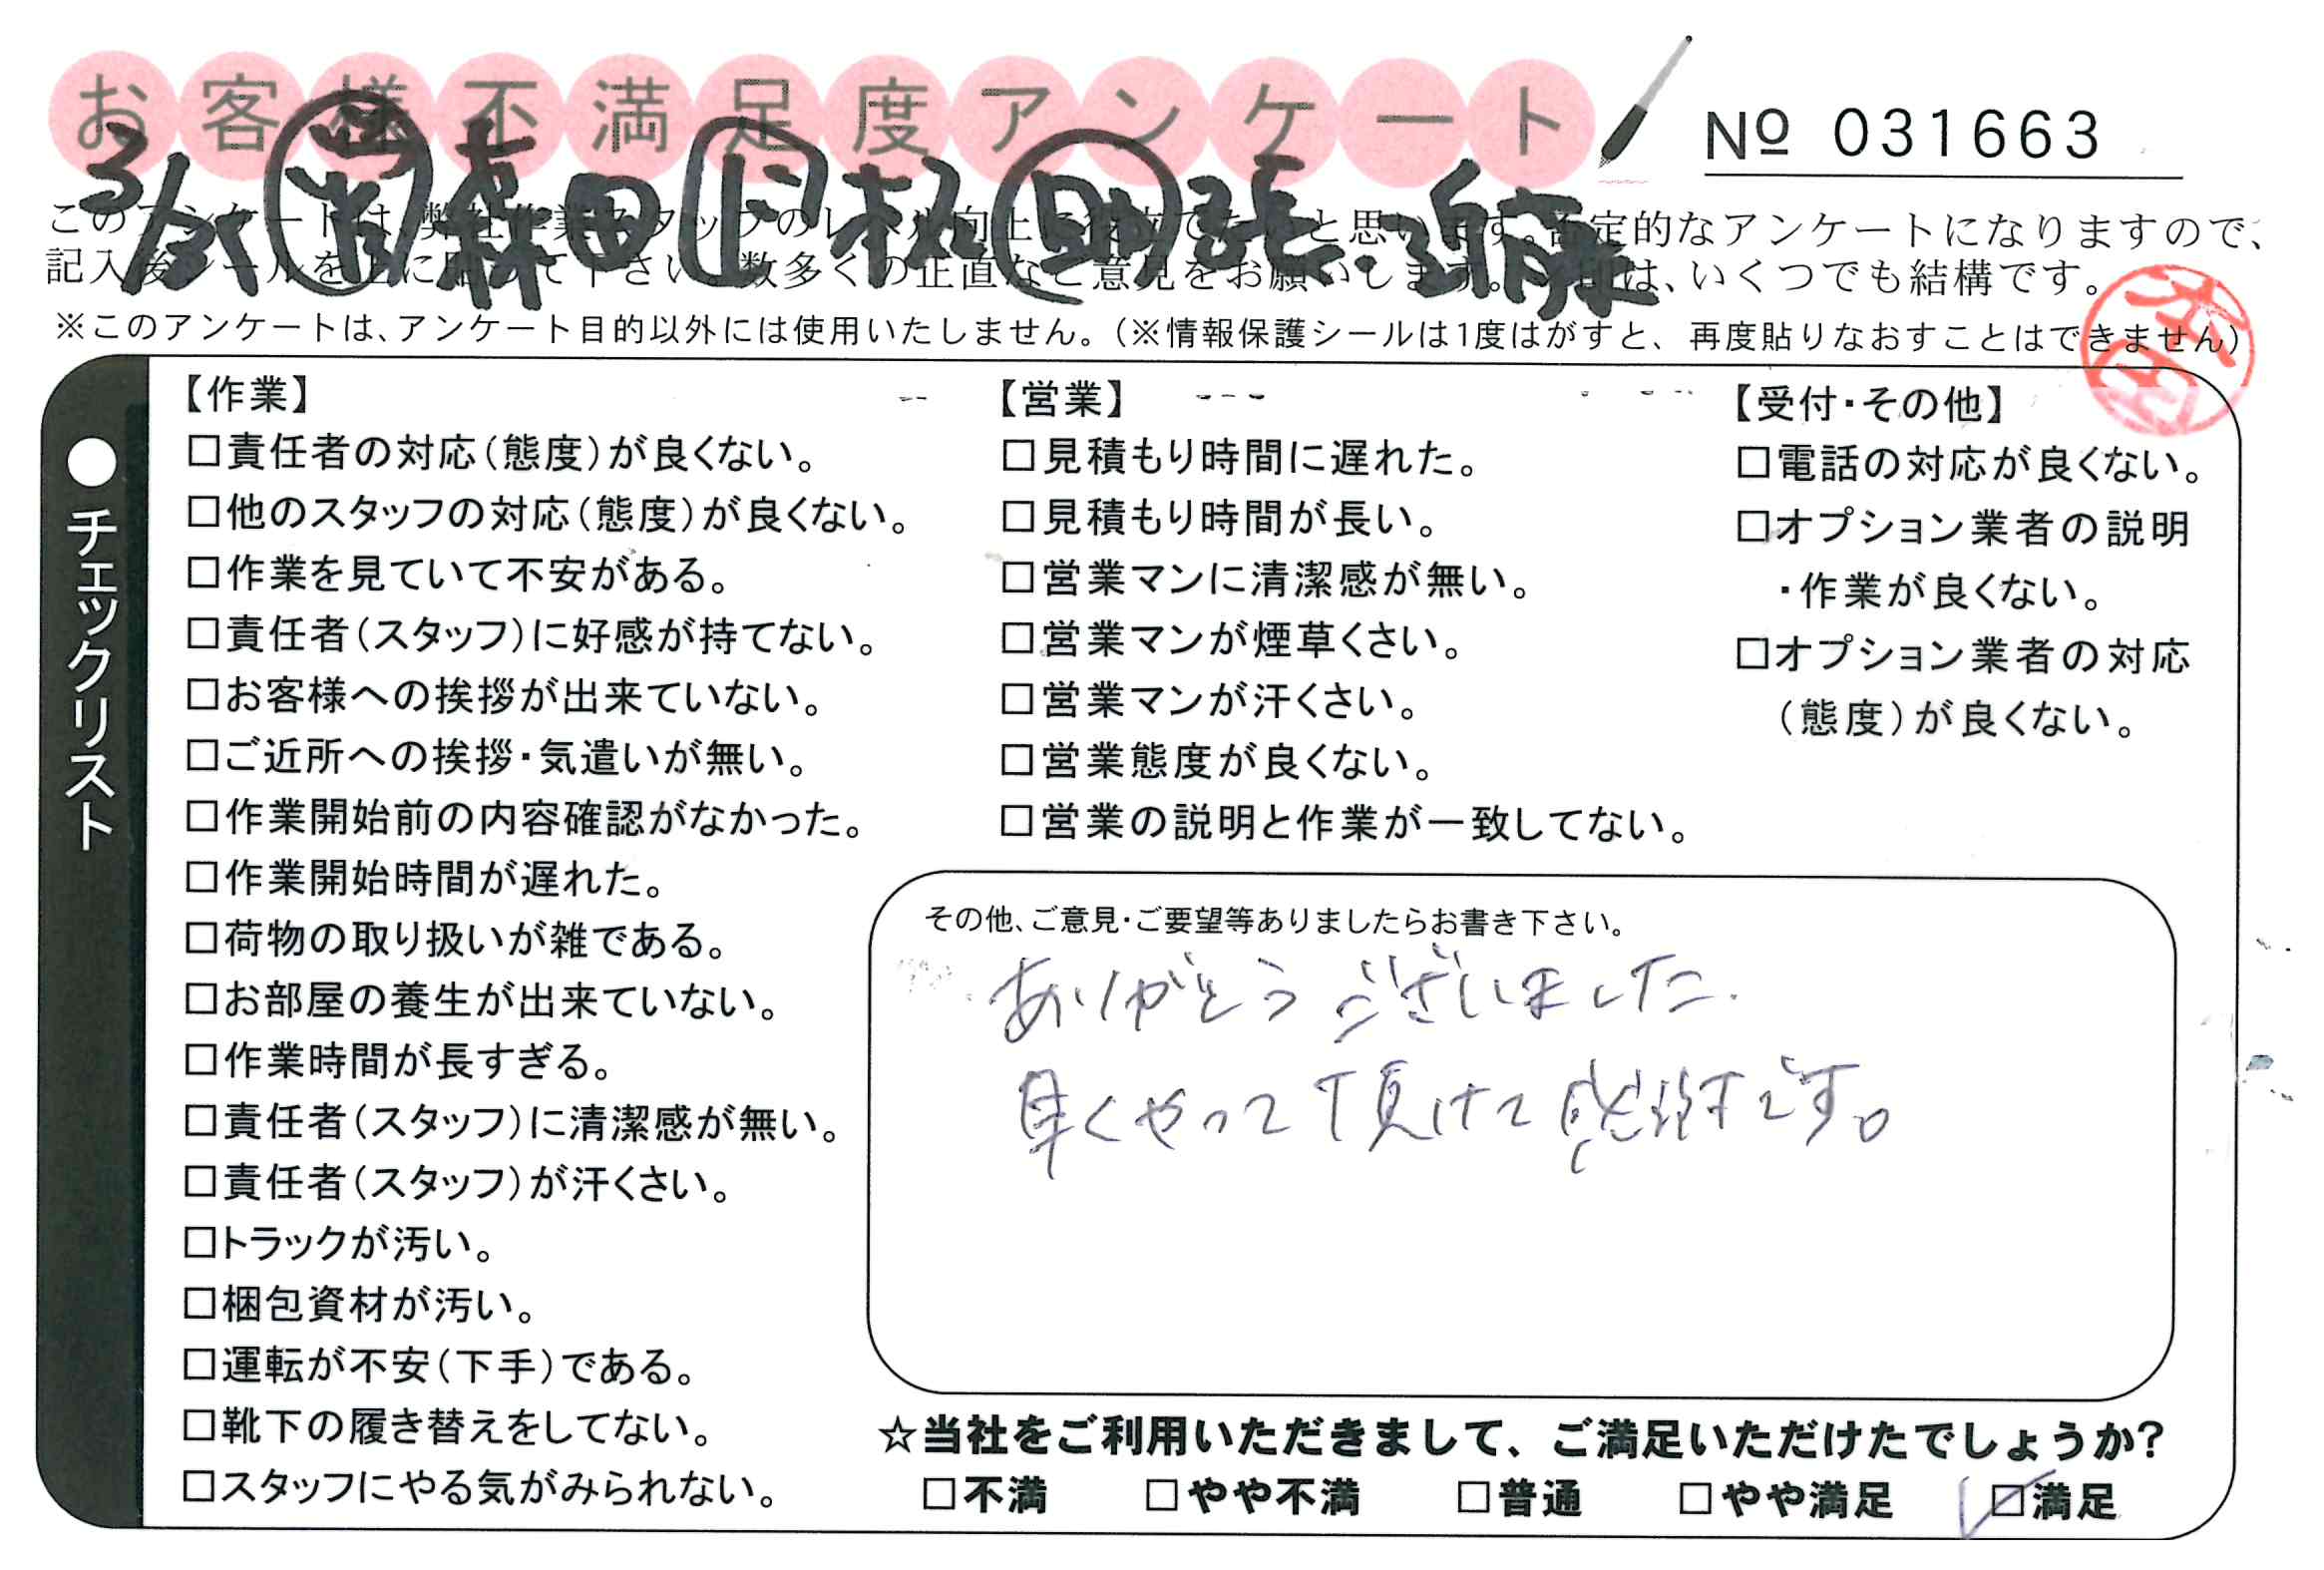 お客様不満足度アンケート
No 031663
3/25 森田 ド 松 助 張・近藤
このアンケートは、弊社作業スタッフのレベル向上に役立てたいと思います。否定的なアンケートになりますので、
記入後シールを上に貼って下さい。数多くの正直なご意見をお願いします。 は、いくつでも結構です。
※このアンケートは、アンケート目的以外には使用いたしません。(※情報保護シールは1度はがすと、再度貼りなおすことはできません)
●チェックリスト
【作業】
□責任者の対応(態度)が良くない。
□他のスタッフの対応(態度)が良くない。
□作業を見ていて不安がある。
□責任者(スタッフ)に好感が持てない。
□お客様への挨拶が出来ていない。
□ご近所への挨拶・気遣いが無い。
□作業開始前の内容確認がなかった。
□作業開始時間が遅れた。
□荷物の取り扱いが雑である。
□お部屋の養生が出来ていない。
□作業時間が長すぎる。
□責任者(スタッフ)に清潔感が無い。
□責任者(スタッフ)が汗くさい。
□トラックが汚い。
□梱包資材が汚い。
□運転が不安(下手)である。
□靴下の履き替えをしてない。
□スタッフにやる気がみられない。
【営業】
□見積もり時間に遅れた。
□見積もり時間が長い。
□営業マンに清潔感が無い。
□営業マンが煙草くさい。
□営業マンが汗くさい。
□営業態度が良くない。
□営業の説明と作業が一致してない。
【受付・その他】
□電話の対応が良くない。
□オプション業者の説明
・作業が良くない。
□オプション業者の対応
(態度)が良くない。
その他、ご意見・ご要望等ありましたらお書き下さい。
ありがとうございました.
早くやって頂けて感謝です。
☆当社をご利用いただきまして、ご満足いただけたでしょうか?
□不満 □やや不満 □普通 □やや満足 ☑満足